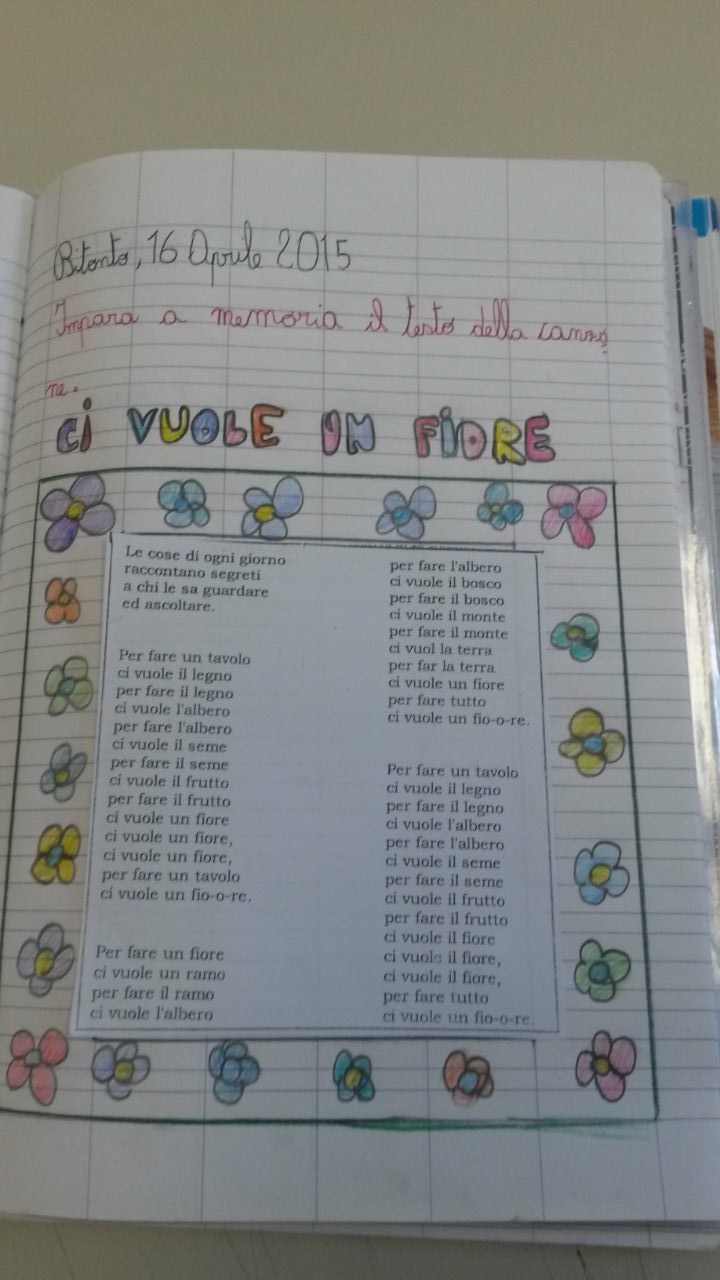 Bitonto, 16 Aprile 2015
Impara a memoria il testo della canzo
ne.
Ci VUOLE UN FiORE
Le cose di ogni giorno
raccontano segreti
a chi le sa guardare
ed ascoltare.
Per fare un tavolo
ci vuole il legno
per fare il legno
ci vuole l'albero
per fare l'albero
ci vuole il seme
per fare il seme
ci vuole il frutto
per fare il frutto
ci vuole un fiore
ci vuole un fiore,
ci vuole un fiore,
per fare un tavolo
ci vuole un fio-o-re.
Per fare un fiore
ci vuole un ramo
per fare il ramo
ci vuole l'albero
per fare l'albero
ci vuole il bosco
per fare il bosco
ci vuole il monte
per fare il monte
ci vuol la terra
per far la terra
ci vuole un fiore
per fare tutto
ci vuole un fio-o-re.
Per fare un tavolo
ci vuole il legno
per fare il legno
ci vuole l'albero
per fare l'albero
ci vuole il seme
per fare il seme
ci vuole il frutto
per fare il frutto
ci vuole il fiore
ci vuole il fiore,
ci vuole il fiore,
per fare tutto
ci vuole un fio-o-re.